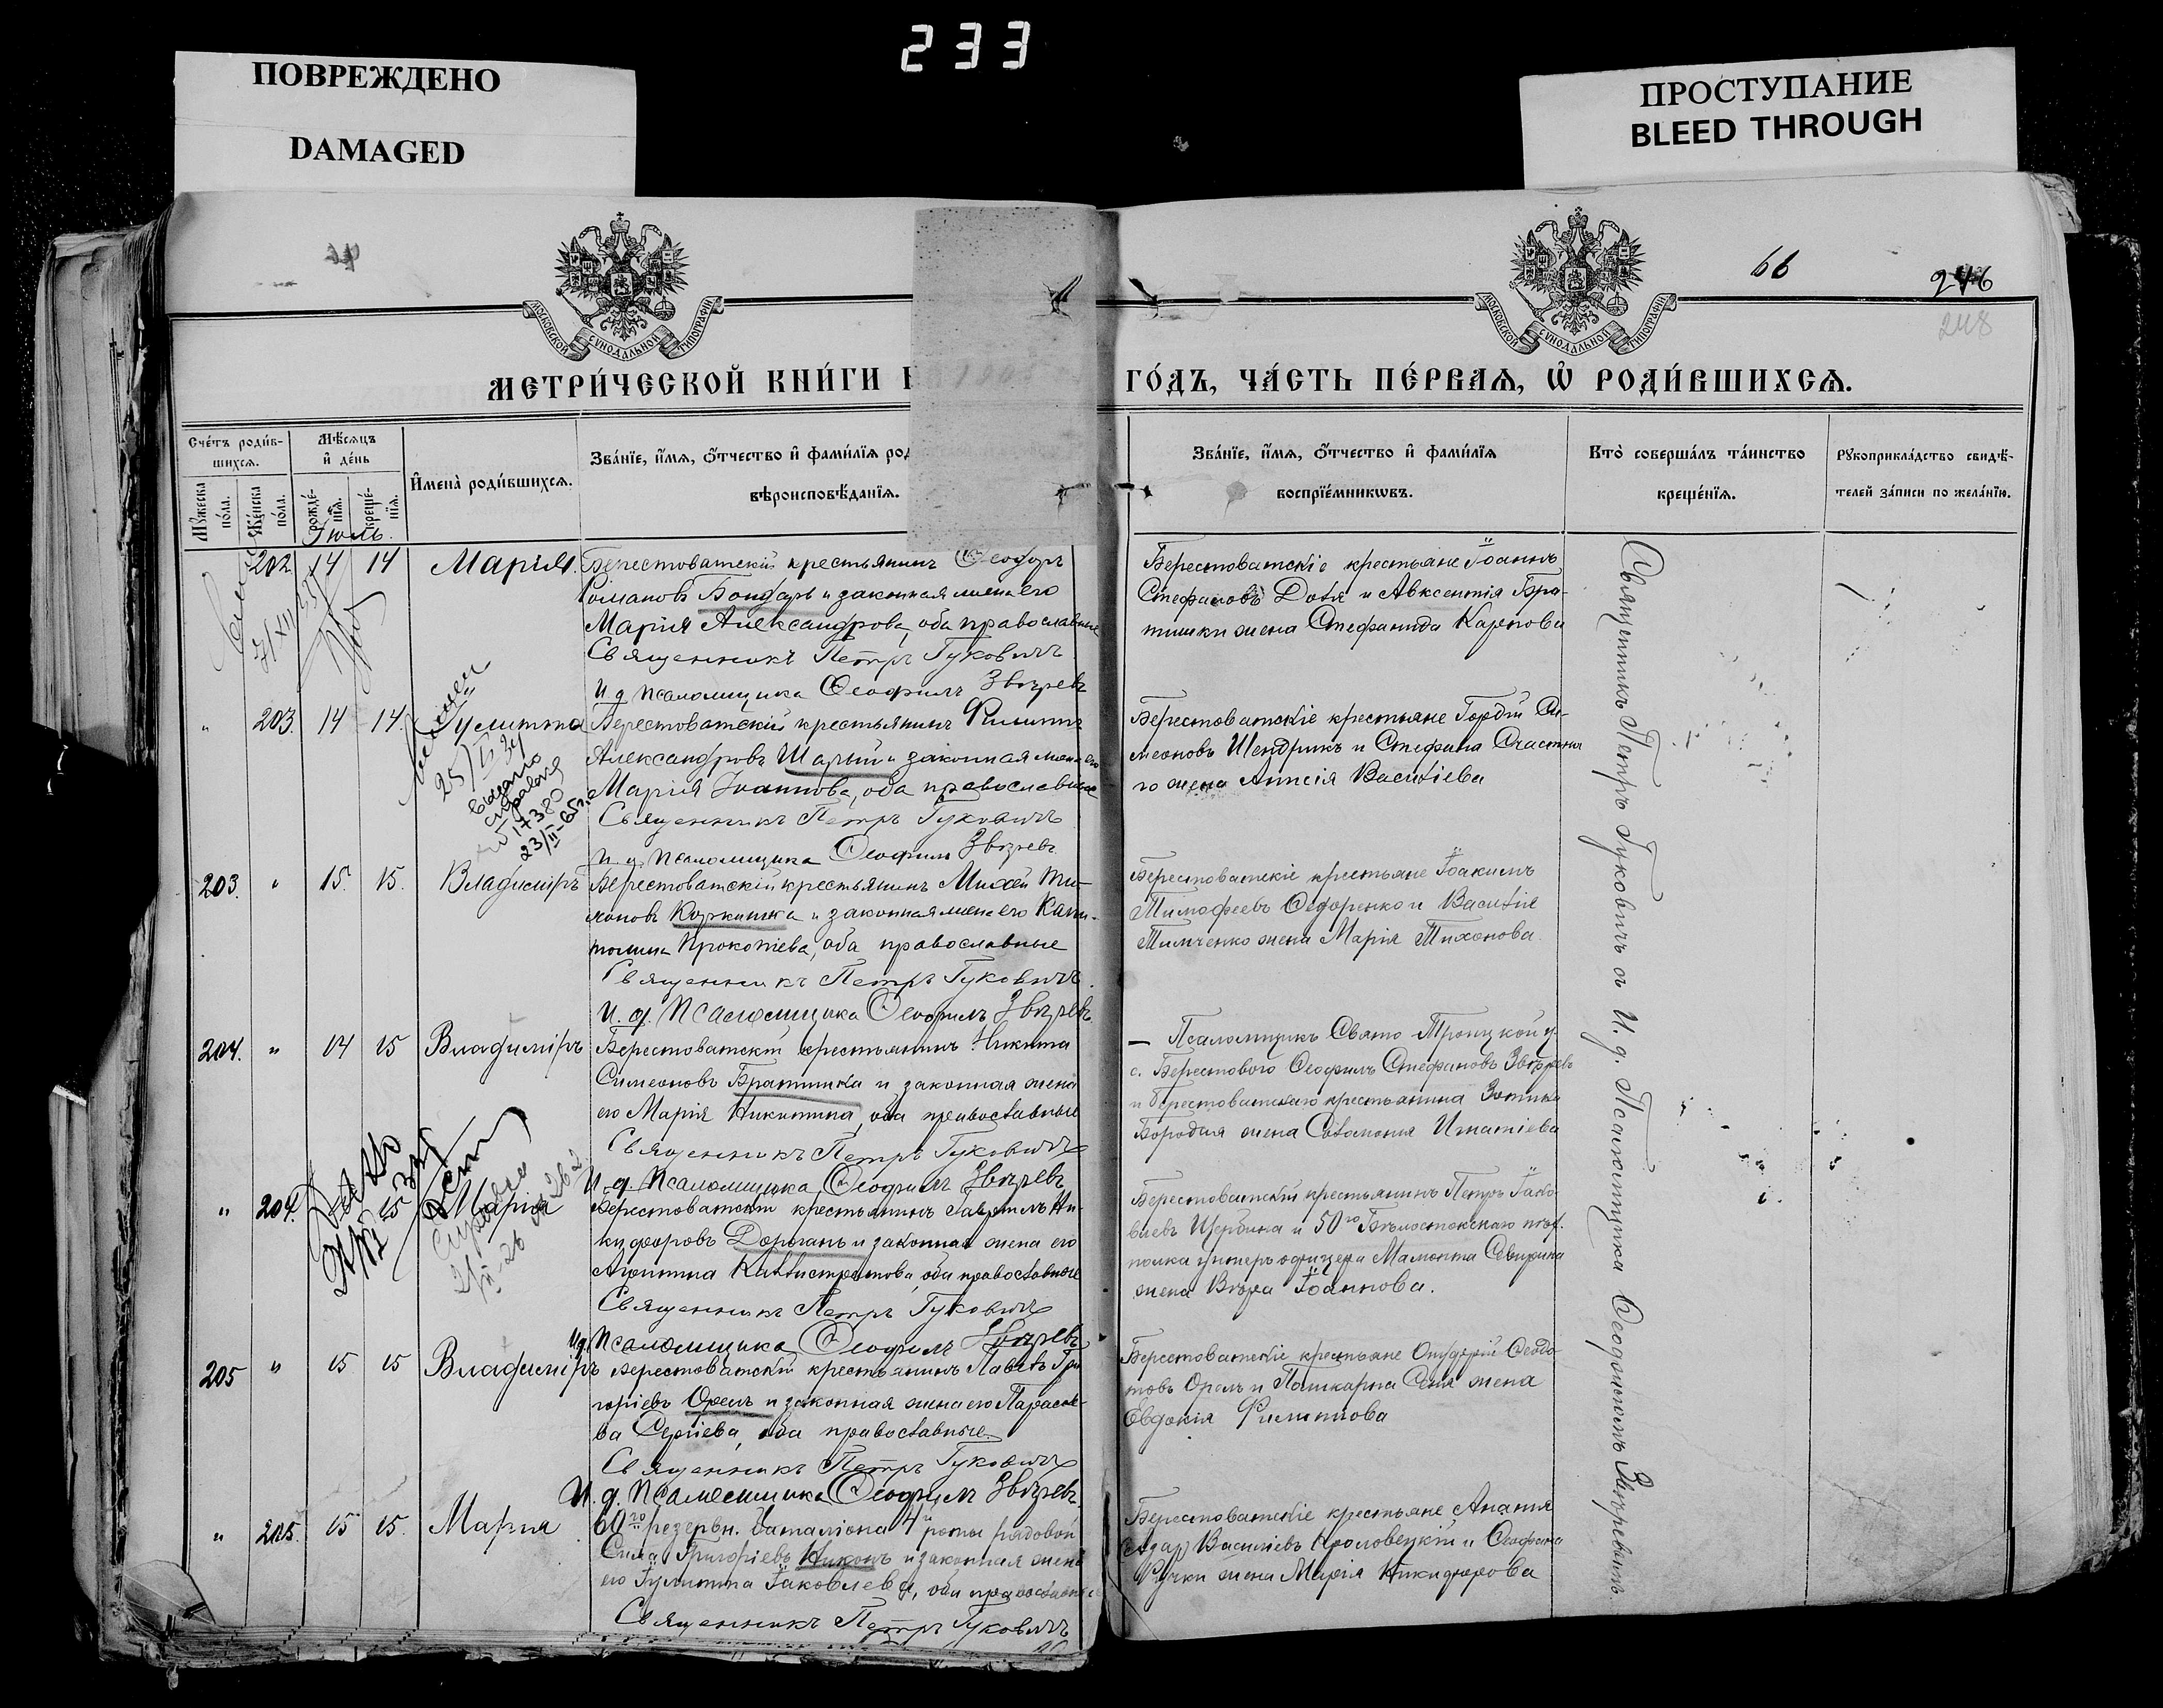 233
ПОВРЕЖДЕНО
DAMAGED
ПРОСТУПАНИЕ
BLEED THROUGH
66
246
248
МОСКОВСКОЙ СѴНОДАЛЬНОЙ ТИПОГРАФІИ
МОСКОВСКОЙ СѴНОДАЛЬНОЙ ТИПОГРАФІИ
МЕТРИ́ЧЕСКОЙ КНИ́ГИ
ГО́ДЪ, ЧА́СТЬ ПЕ́РВАѦ, Ѡ҆ РОДИ́ВШИХСѦ.
Сче́тъ роди́в-
шихсѧ.
Мꙋжеска по́ла.
Же́нска по́ла.
Мѣ́сѧцъ
и҆ де́нь
рожде́-
нїѧ.
креще́-
нїѧ.
И҆мена̀ роди́вшихсѧ.
Зва́нїе, и҆́мѧ, ѻ҆́тчество и҆ фами́лїѧ
вѣроисповѣ́данїѧ.
Зва́нїе, и҆́мѧ, ѻ҆́тчество и҆ фами́лїѧ
воспрїе́мникѡвъ.
Кто̀ соверша́лъ та́инство
креще́нїѧ.
Рꙋкоприкла́дство свидѣ́-
телей за́писи по жела́нїю.
Іюль.
202 14 14 Марія.
Берестоватскій крестьянинъ Ѳеодоръ
Романовъ Бондарь и законная жена его
Марія Александрова, оба православные
Священникъ Петръ Гуковичъ
И д псаломщика Ѳеофилъ Звѣревъ
Берестоватскіе крестьяне Іоаннъ
Стефановъ Доля и Авксентія Бра-
тишки жена Стефанида Карпова
" 203. 14 14. Іулитта
Берестоватскій крестьянинъ Филиппъ
Александровъ Шарый и законная жена его
Марія Іоаннова, оба православные
Священникъ Петръ Гуковичъ
И. д. псаломщика Ѳеофилъ Звѣревъ
Берестоватскіе крестьяне Гордій Си-
меоновъ Шендрикъ и Стефана Счастна-
го жена Анисія Василіева
17380
23/II-65г.
203. " 15. 15. Владиміръ
Берестоватскій крестьянинъ Михей
Коркишка и законная жена его Капи-
толина Прокопіева, оба православные
Священникъ Петръ Гуковичъ.
И. д. Псаломщика Ѳеофилъ Звѣревъ
Берестоватскіе крестьяне Іоакимъ
Тимофеевъ Ѳедоренко и Василія
Тимченко жена Марія Тихонова.
204. " 14 15 Владиміръ
Берестоватскій крестьянинъ Никита
Симеоновъ Братишка и законная жена
его Марія Никитина, оба православные
Священникъ Петръ Гуковичъ
И. д. Псаломщика Ѳеофилъ Звѣревъ
Псаломщикъ Свято-Троицкой ц.
с. Берестового Ѳеофилъ Стефановъ Звѣревъ
и берестоватскаго крестьянина Зотика
Бородая жена Соломонія Игнатіева
" 204. 15 Марія
Берестоватскій крестьянинъ Гавріилъ Ни-
кифоровъ Дорганъ и законная жена его
Агриппина Каллистратова, оба православные
Священникъ Петръ Гуковичъ
И д. Псаломщика Ѳеофилъ Звѣревъ
Берестоватскій крестьянинъ Петръ Іако-
влевъ Щербина и 50го Бѣлостокскаго пѣх.
полка унтеръ офицера Мамонта Свирина
жена Вѣра Іоаннова.
205 " 15 15 Владиміръ
Берестоватскій крестьянинъ Павелъ Гри-
горіевъ Орелъ и законная жена его Параске-
ва Сергіева, оба православные.
Священникъ Петръ Гуковичъ
И. д. Псаломщика Ѳеофилъ Звѣревъ.
Берестоватскіе крестьяне Онуфрій Ѳеодо-
товъ Орелъ и жена
Евдокія Филиппова
" 205. 15 15. Марія
60го резервн. баталіона 4й роты рядовой
Сила Григоріевъ Никонъ и законная жена
его Іулитта Іаковлева, оба православные
Священникъ Петръ Гуковичъ
Берестоватскіе крестьяне Ананія
Василіевъ Кроловецкій и Ѳеофана
Ручки жена Марія Никифорова
Священникъ Петръ Гуковичъ съ И. д. Псаломщика Ѳеофиломъ Звѣревымъ.